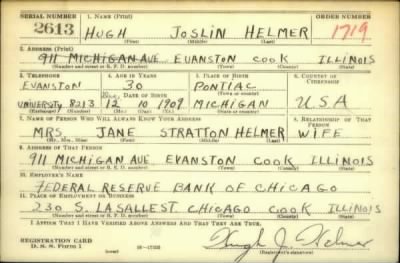 SERIAL NUMBER 1. NAME (Print) ORDER NUMBER
2613 HUGH JOSLIN HELMER 1719
(First) (Middle) (Last)
2. ADDRESS (Print)
911 MICHIGAN AVE. EVANSTON COOK ILLINOIS
(Number and street or R. F. D. number) (Town) (County) (State)
3. TELEPHONE 4. AGE IN YEARS 5. PLACE OF BIRTH 6. COUNTRY OF CITIZENSHIP
EVANSTON 30 PONTIAC
UNIVERSITY 8213 12 10 1909 MICHIGAN U.S.A
(Exchange) (Number) (Mo.) (Day) (Yr.) (State or country)
7. NAME OF PERSON WHO WILL ALWAYS KNOW YOUR ADDRESS 8. RELATIONSHIP OF THAT PERSON
MRS. JANE STRATTON HELMER WIFE
(Mr., Mrs., Miss) (First) (Middle) (Last)
9. ADDRESS OF THAT PERSON
911 MICHIGAN AVE. EVANSTON COOK ILLINOIS
(Number and street or R. F. D. number) (Town) (County) (State)
10. EMPLOYER'S NAME
FEDERAL RESERVE BANK OF CHICAGO
11. PLACE OF EMPLOYMENT OR BUSINESS
230 S. LASALLE ST. CHICAGO COOK ILLINOIS
(Number and street or R. F. D. number) (Town) (County) (State)
I AFFIRM THAT I HAVE VERIFIED ABOVE ANSWERS AND THAT THEY ARE TRUE.
REGISTRATION CARD
D. S. S. Form 1 Hugh J. Helmer
(Registrant's signature)